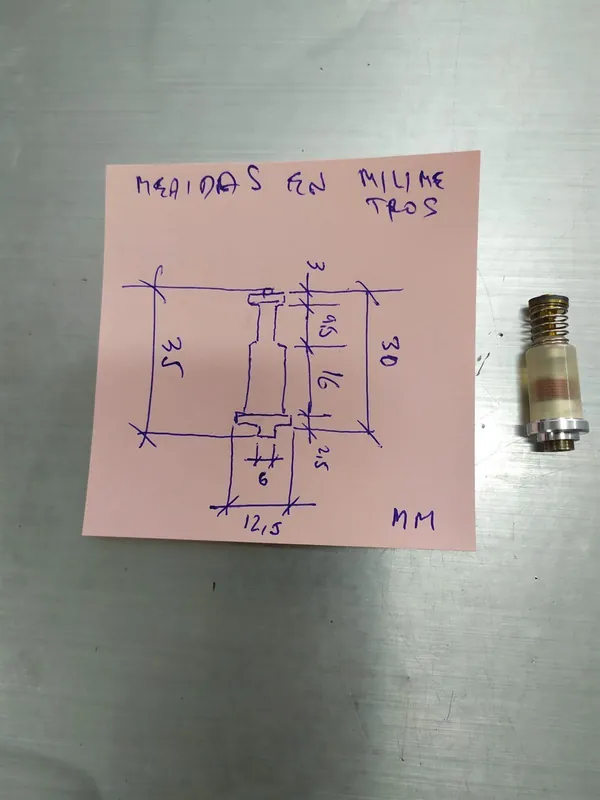 MEAIDAS EN MILIME
TROS
3
9,5
35
16
30
2,5
6
12,5
MM